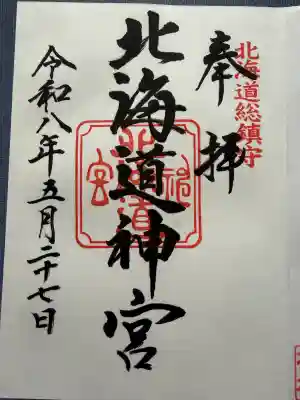 北海道総鎮守
奉拝
北海道神宮
令和八年五月二十七日